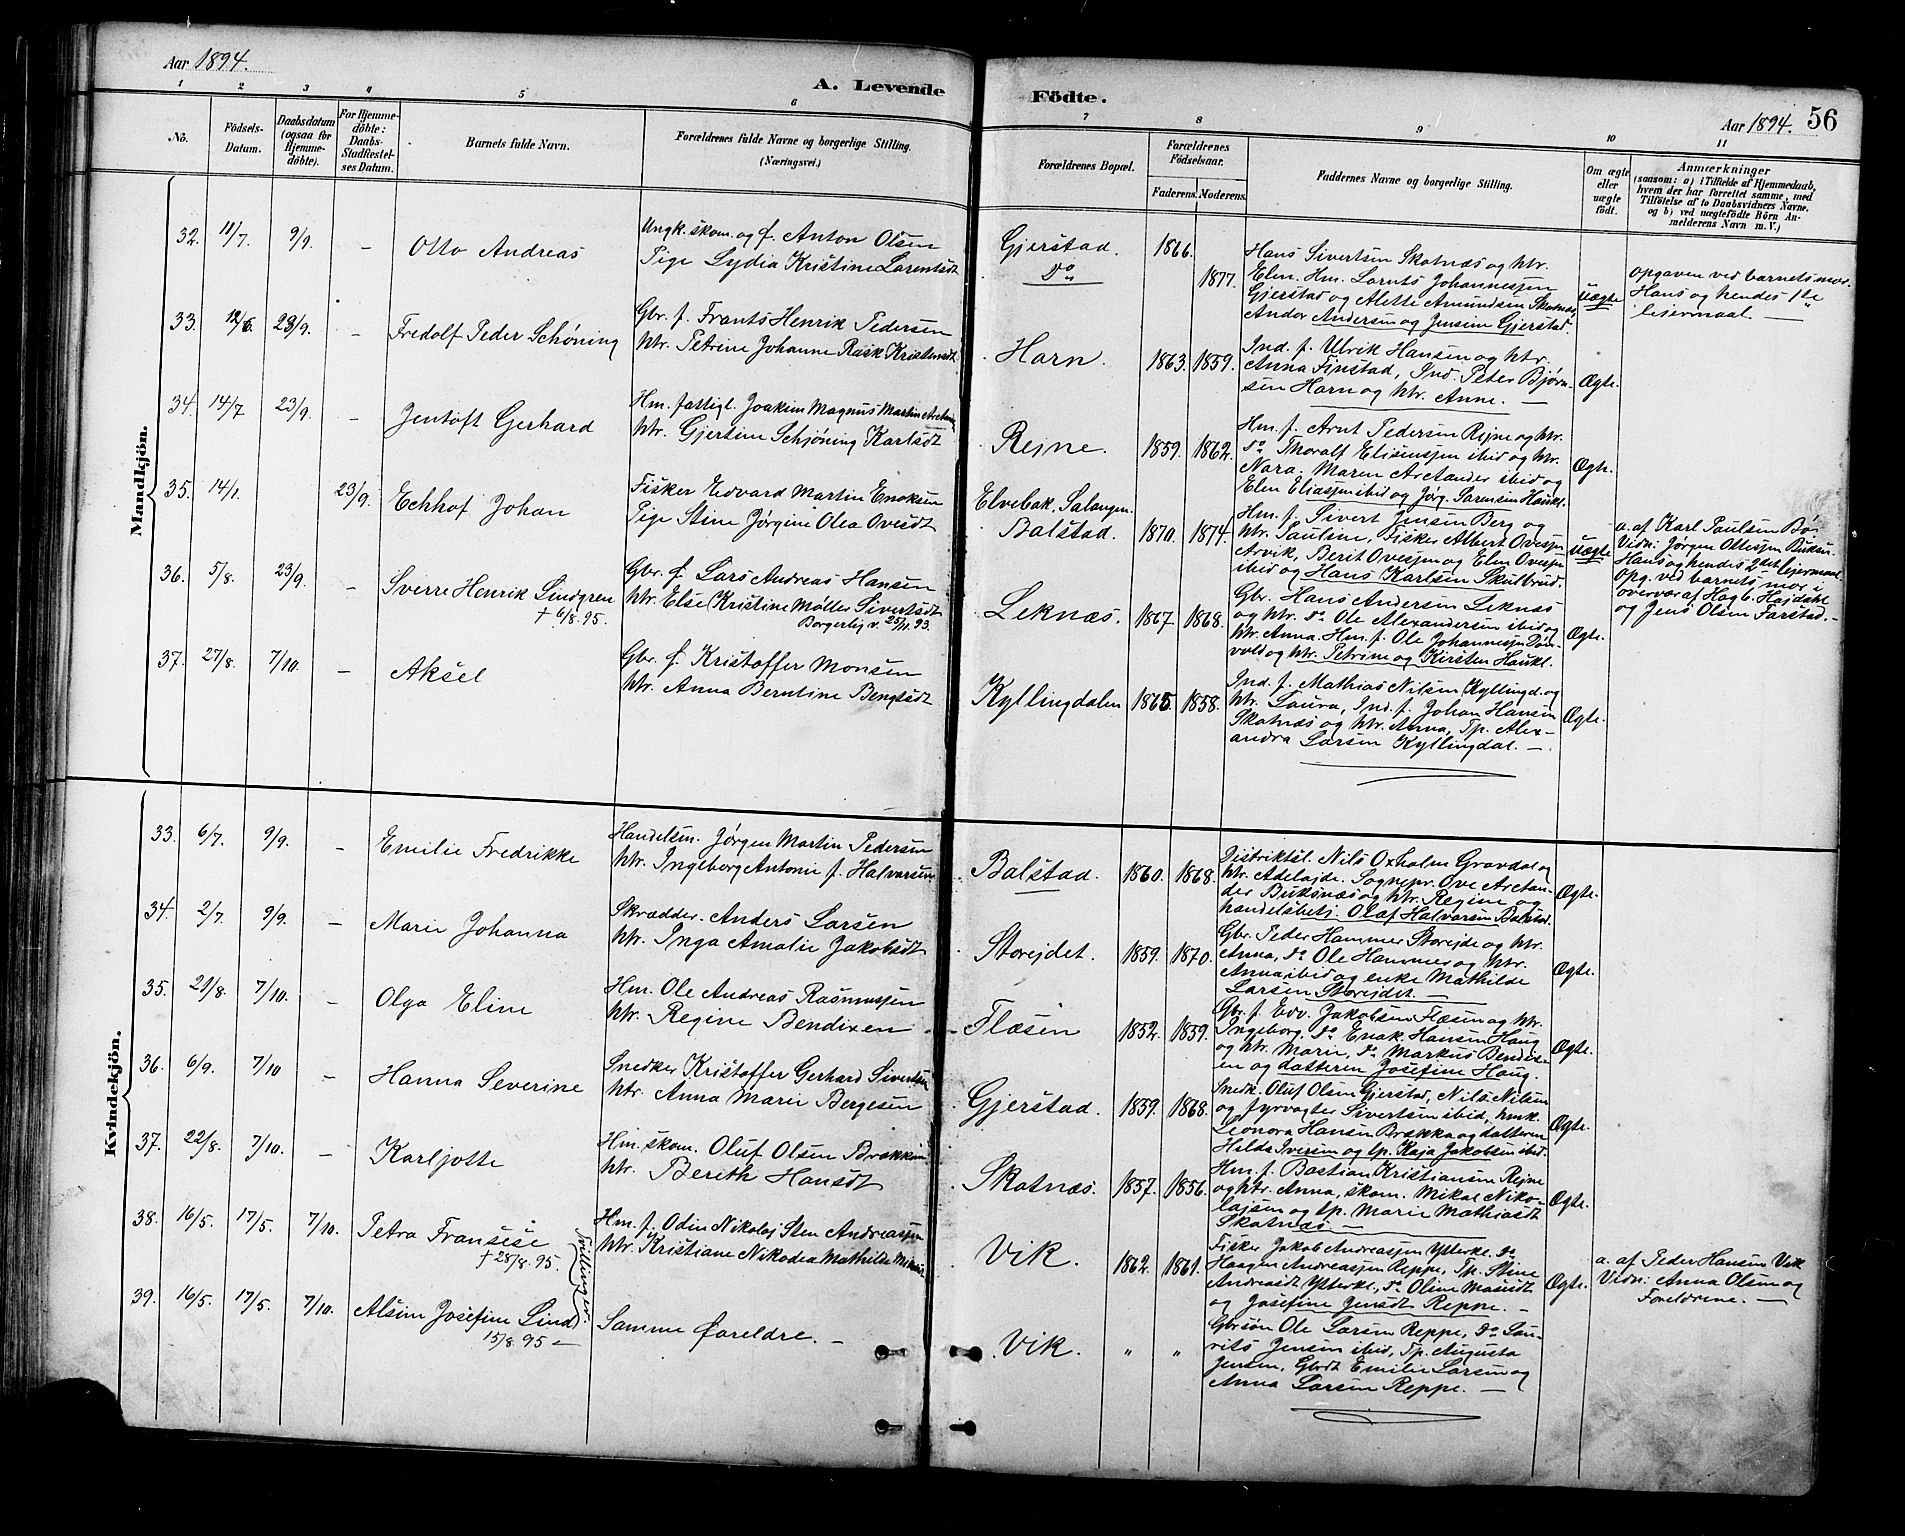 Aar 1894.
A. Levende
Födte.
Aar 1894. 56
1 2 3 4 5 6 7 8 9 10 11
No.
Födsels-
Datum.
Daabsdatum
(ogsaa for
Hjemme-
döbte).
For Hjemme-
döbte:
Daabs-
Stadfæstel-
ses Datum.
Barnets fulde Navn.
Forældrenes fulde Navne og borgerlige Stilling.
(Næringsvei.)
Forældrenes Bopæl.
Forældrenes
Födselsaar.
Faderens. Moderens.
Faddernes Navne og borgerlige Stilling.
Om ægte
eller
uægte
födt.
Anmærkninger
(saasom: a) i Tilfælde af Hjemmedaab,
hvem der har forrettet samme, med
Tilföielse af to Daabsvidners Navne,
og b) ved uægtefödte Börn An-
melderens Navn m. V.)
Mandkjön.
32. 11/7. 9/9. – Otto Andreas
Ungk. skom. og f. Anton Olsen
Pige Lydia Kristine Lorentsdt
Gjerstad.
Do
1866.
1877.
Hans Sivertsen Skotnæs og htr.
Elen. Hm. Lornts Johannessen
Gjerstad og Alette Amundsen Skotnæs,
Andor Andersen og Jensine Gjerstad.
Uægte
Opgaven ved barnets mor.
Hans og hendes 1ste
leiermaal. –
33. 12/6. 23/9. – Fredolf Peder Schøning
Gbr. f. Frants Henrik Pedersen
htr. Petrine Johanne Rask Kristensdt
Horn. 1863. 1859.
Ind. f. Ulrik Hansen og htr.
Anna Finstad, Ind. Peter Bjørn-
sen Horn og htr. Anne. –
Ægte.
34. 14/7. 23/9. – Jentoft Gerhard
Hm. fattigl. Joakim Magnus Martin
htr. Gjertine Schjøning Karlsdt
Rejne. 1859. 1862.
Hm. f. Arnt Pedersen Rejne og htr.
do Thoralf Elisenssen ibid og htr.
Nora. Maren Arctander ibid og
Elen Eliassen ibid og Jørg. Sørensen Haukl.
Ægte.
35. 14/1. 23/9. Echhof Johan
Fisker Edvard Martin Enoksen
Pige Stine Jørgine Olea Ovesdt
Elvebak, Salangen.
Balstad. 1870. 1874.
Hm. f. Sivert Jensen Berg og
htr. Pauline, Fisker Albert Ovessen
Arvik, Berit Ovessen og Elen Ovessen
ibid og Hans Karlsen Skulbrud.
Uægte
a. af Karl Paulsen Bø.
Vidn: Jørgen Ottessen Buksn.
Hans og hendes 2det leiermaal.
Opg. ved barnets mor i
overvær af Hag b. Hajdahl
og Jens Olsen Farstad. –
36. 5/8. 23/9. – Sverre Henrik Lindgren
† 6/8.95.
Gbr. f. Lars Andreas Hansen
htr. Else Kristine Møller Sivertsdt
Borgerlig v. 25/11. 93.
Leknæs. 1867. 1868.
Gbr. Hans Andersen Leknæs
og htr. do Ole Alexandersen ibid og
htr. Anna. Hm. f. Ole Johannessen
vold og htr. Petrine og Kirsten Haukl.
Ægte.
37. 27/8. 7/10. – Aksel
Gbr. f. Kristoffer Monsen
htr. Anna Berntine Bengtsdt
Kyllingdalen 1865. 1858.
Ind. f. Mathias Nilsen Kyllingd. og
htr. Laura, Ind. f. Johan Hansen
Skotnæs og htr. Anna, Tp. Alex-
andra Larsen Kyllingdal. –
Ægte.
Kvindekjön.
33. 6/7. 9/9. – Emilie Fredrikke
Handelsm. Jørgen Martin Pedersen
htr. Ingeborg Antonie f. Halvorsen
Balstad. 1860. 1868.
Distriktsl. Nils Oxholm Gravdal og
htr. Adelajde. Sognepr. Ove Arctan-
der Buksnæs og htr. Regine og
handelsbetj. Olaf Halvorsen Balstad.
Ægte.
34. 2/7. 9/9. – Marie Johanna
Skrædder. Anders Larsen
htr. Inga Amalie Jakobsdt
Storejdet. 1859. 1870.
Gbr. Peder Hammer Storejde og htr.
Anna, do Ole Hammer og htr.
Anna ibid og enke Mathilde
Larsen Storejdet. –
Ægte.
35. 29/8. 7/10. – Olga Eline
Hm. Ole Andreas Rasmussen
htr. Regine Bendixen
Flæsen 1852. 1859.
Gbr. f. Edv. Jakobsen Flæsen og htr.
Ingeborg, do Enok Hansen Haug
og htr. Marie, do Markus Bendix-
en og datteren Josefine Haug.
Ægte.
36. 6/9. 7/10 – Hanna Severine
Snedker Kristoffer Gerhard Sivertsen
htr. Anna Marie Bergesen
Gjerstad. 1859. 1868.
Snedk. Oluf Olsen Gjerstad, Nils Nilsen
og fyrvogter Sivertsen ibid, hmk.
Leonora Hansen Brækka og datteren
Hilda Iversen og tp. Kaja Jakobsen ibid.
Ægte.
37. 22/8. 7/10. – Karljotte
Hm. skom. Oluf Olsen Brække
htr. Berith Hansdt
Skotnæs. 1857. 1856.
Hm. f. Bastian Kristiansen Rejne
og htr. Anna, skom. Mikal Niko-
lajsen og tp. Marie Mathiasdt
Skotnæs. –
Ægte.
38. 16/5. 17/5. 7/10. Petra Fransise
† 28/8. 95.
Tvillinger.
Hm. f. Odin Nikolaj Sten Andreassen
htr. Kristiane Nikodea Mathilde
Vik. 1862. 1861.
Fisker Jakob Andreassen Ytterkl. do
Haagen Andreassen Reppe, Tp. Stine
Andreasdt Ytterkl, do Oline Monsdt
og Josefine Jensdt Reppe. –
Ægte.
a. af Peder Hansen Vik
Vidn: Anna Olsen og
Foreldrene. –
39. 16/5. 17/5. 7/10. Alsine Josefine Lind
15/8. 95 –
Samme Foreldre. –
Vik. " "
Gbrsøn Ole Larsen Reppe, do Lau-
rits Jensen ibid, Tp. Augusta
Jensen, Gbrdt Emilie Larsen og
Anna Larsen Reppe. –